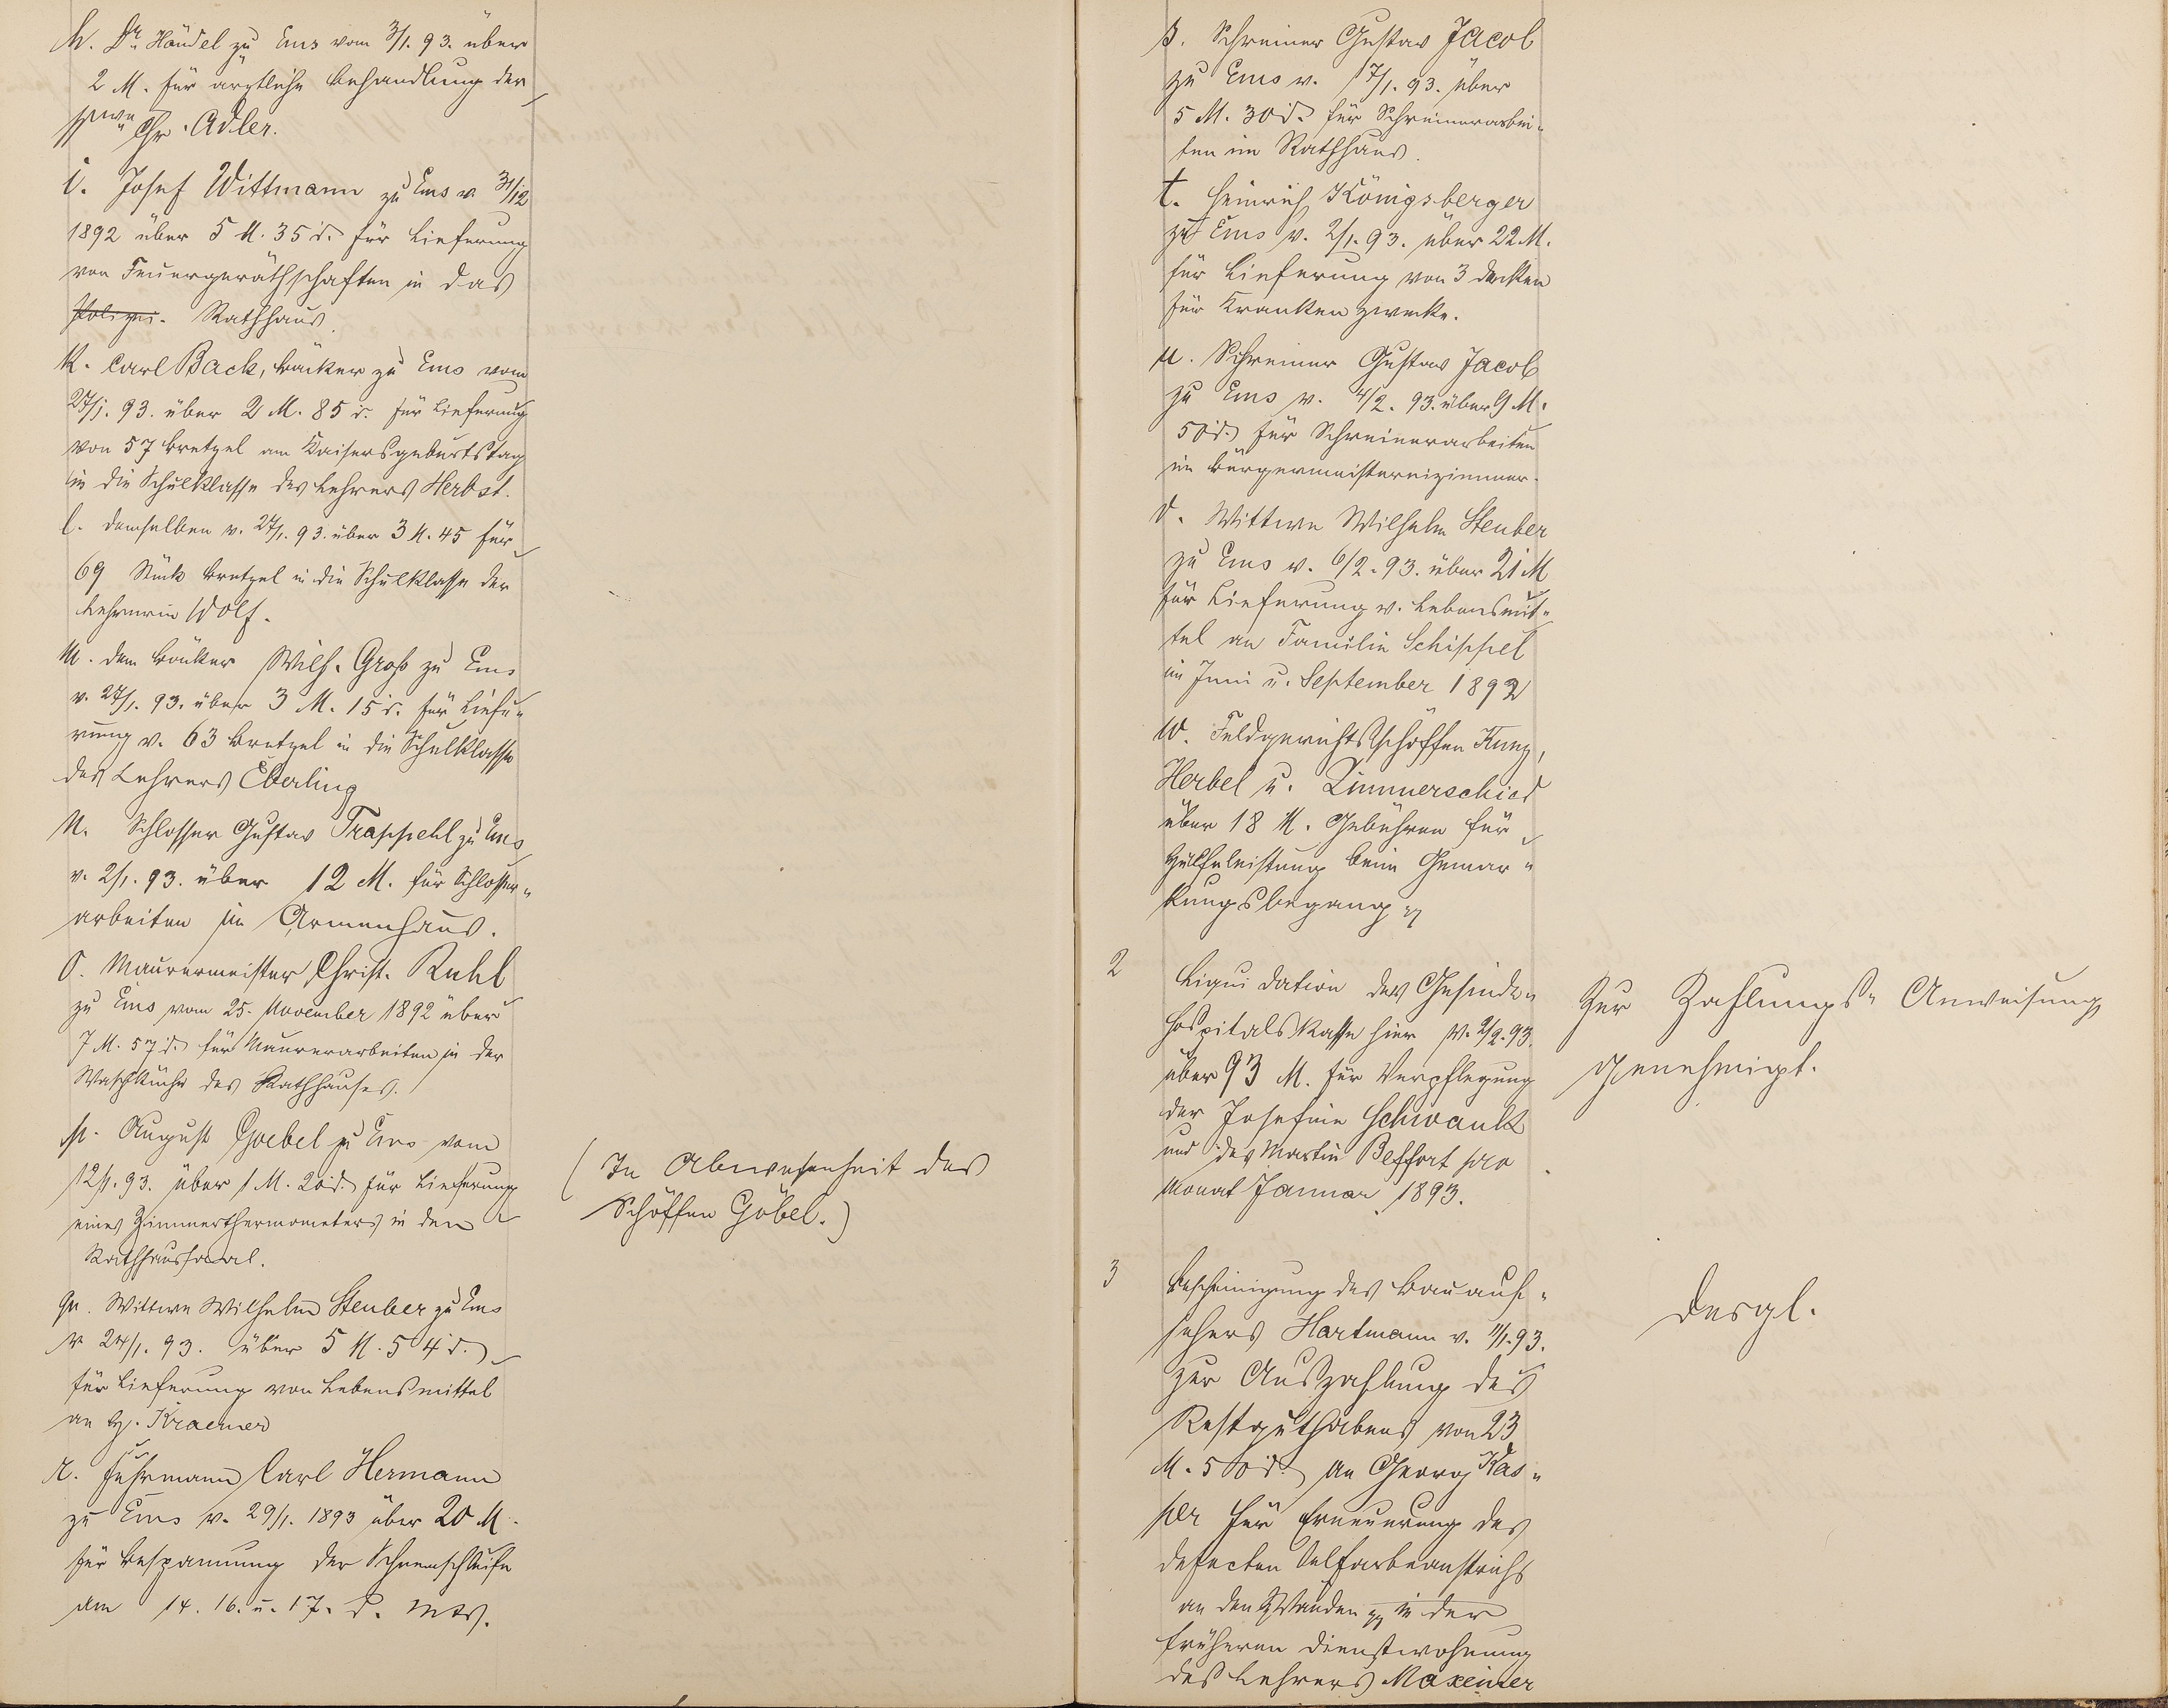 h. Dr. Händel zu Ems vom 3/1. 93. über
2 M. für ärztliche Behandlung der
Chr. Adler.
i. Josef Wittmann zu Ems v. 31/12
1892 über 5 M. 35 d. für Lieferung
von Feuergeräthschaften in das
Polizei- Rathhaus.
k. Carl Back, Bäcker zu Ems vom
27/1. 93. über 2 M. 85 d. für Lieferung
von 57 Bretzel am Kaisersgeburtstag
in die Schulklasse des Lehrers Herbst.
l. demselben v. 27/1. 93. über 3 M. 45 für
69 Stück Bretzel in die Schulklasse der
Lehrerin Wolf.
m. dem Bäcker Wilh. Groß zu Ems
v. 27/1. 93. über 3 M. 15 d. für Liefe-
rung v. 63 Bretzel in die Schulklasse
des Lehrers Eberling
n. Schlosser Gustav Trappehl zu Ems
v. 2/1. 93. über 12 M. für Schlosser-
arbeiten im Armenhaus.
o. Maurermeister Christ. Ruhl
zu Ems vom 25. November 1892 über
7 M. 57 d. für Maurerarbeiten in der
Waschküche des Rathhauses.
p. August Goebel zu Ems vom
12/1. 93. über 1 M. 20 d. für Lieferung
eines Zimmerthermometers in den
Rathhaussaal.
(In Abwesenheit des
Schöffen Göbel.)
q. Wittwe Wilhelm Steuber zu Ems
v 24/1. 93. über 5 M. 54 d.
für Lieferung von Lebensmittel
an Kraemer
r. Fuhrmann Carl Hermann
zu Ems v. 29/1. 1893 über 20 M.
für Bespannung der Schneeschleife
am 14. 16. u. 17. d. Mts.
s. Schreiner Gustav Jacob
zu Ems v. 17/1. 93. über
5 M. 30 d. für Schreinerarbei-
ten im Rathhaus.
t. Heinrich Königsberger
zu Ems v. 2/1. 93. über 22 M.
für Lieferung von 3 Decken
für Krankenzwecke.
u. Schreiner Gustav Jacob
zu Ems v. 4/2. 93. über 9 M.
50 d. für Schreinerarbeiten
im Bürgermeistereizimmer.
v. Wittwe Wilhelm Steuber
zu Ems v. 6/2. 93. über 21 M
für Lieferung v. Lebensmit-
tel an Familie Schippel
im Juni u. September 1892
w. Feldgerichtsschöffen Kunz,
Herbel u. Zimmerschied
über 18 M. Gebühren für
Hülfeleistung beim Gemar-
kungsbegang
2 Liquidation der Gesinde-
hospitalskasse hier v. 2/2. 93.
über 93 M. für Verpflegung
der Josefine Schwank
und des Martin Beffort pro
Monat Januar 1893.
Zur Zahlungs-Anweisung
genehmigt.
3 Bescheinigung des Bauauf-
sehers Hartmann v. 11/1. 93.
zur Auszahlung des
Restguthabens von 23
M. 50 d. an Georg Kas-
per für Erneuerung des
defecten Oelfarbeanstrichs
an den Wänden in der
früheren Dienstwohnung
des Lehrers Maxeiner
desgl.